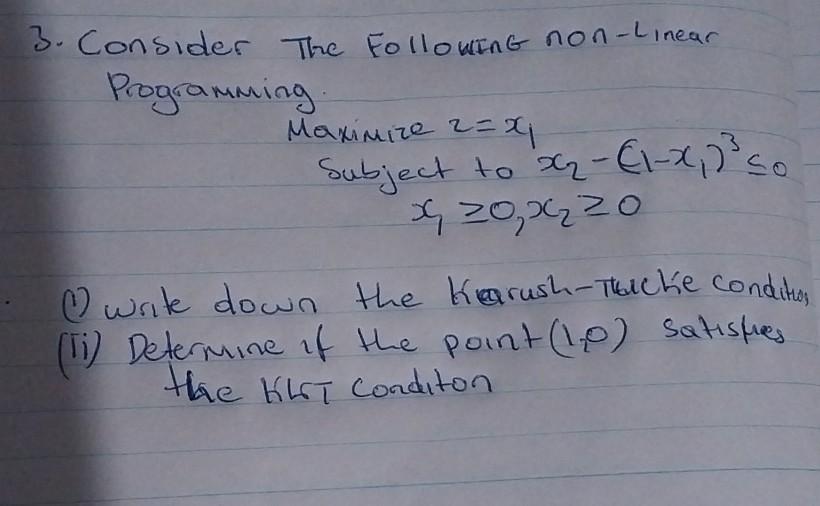 3. Consider The Following non-Linear
Programming.
Maximize z = x₁
Subject to x₂ - (1-x₁)³ ≤ 0
x₁ ≥ 0, x₂ ≥ 0
(i) write down the Karush-Tucke condition
(ii) Determine if the point (1,0) satisfies
the KKT Conditon